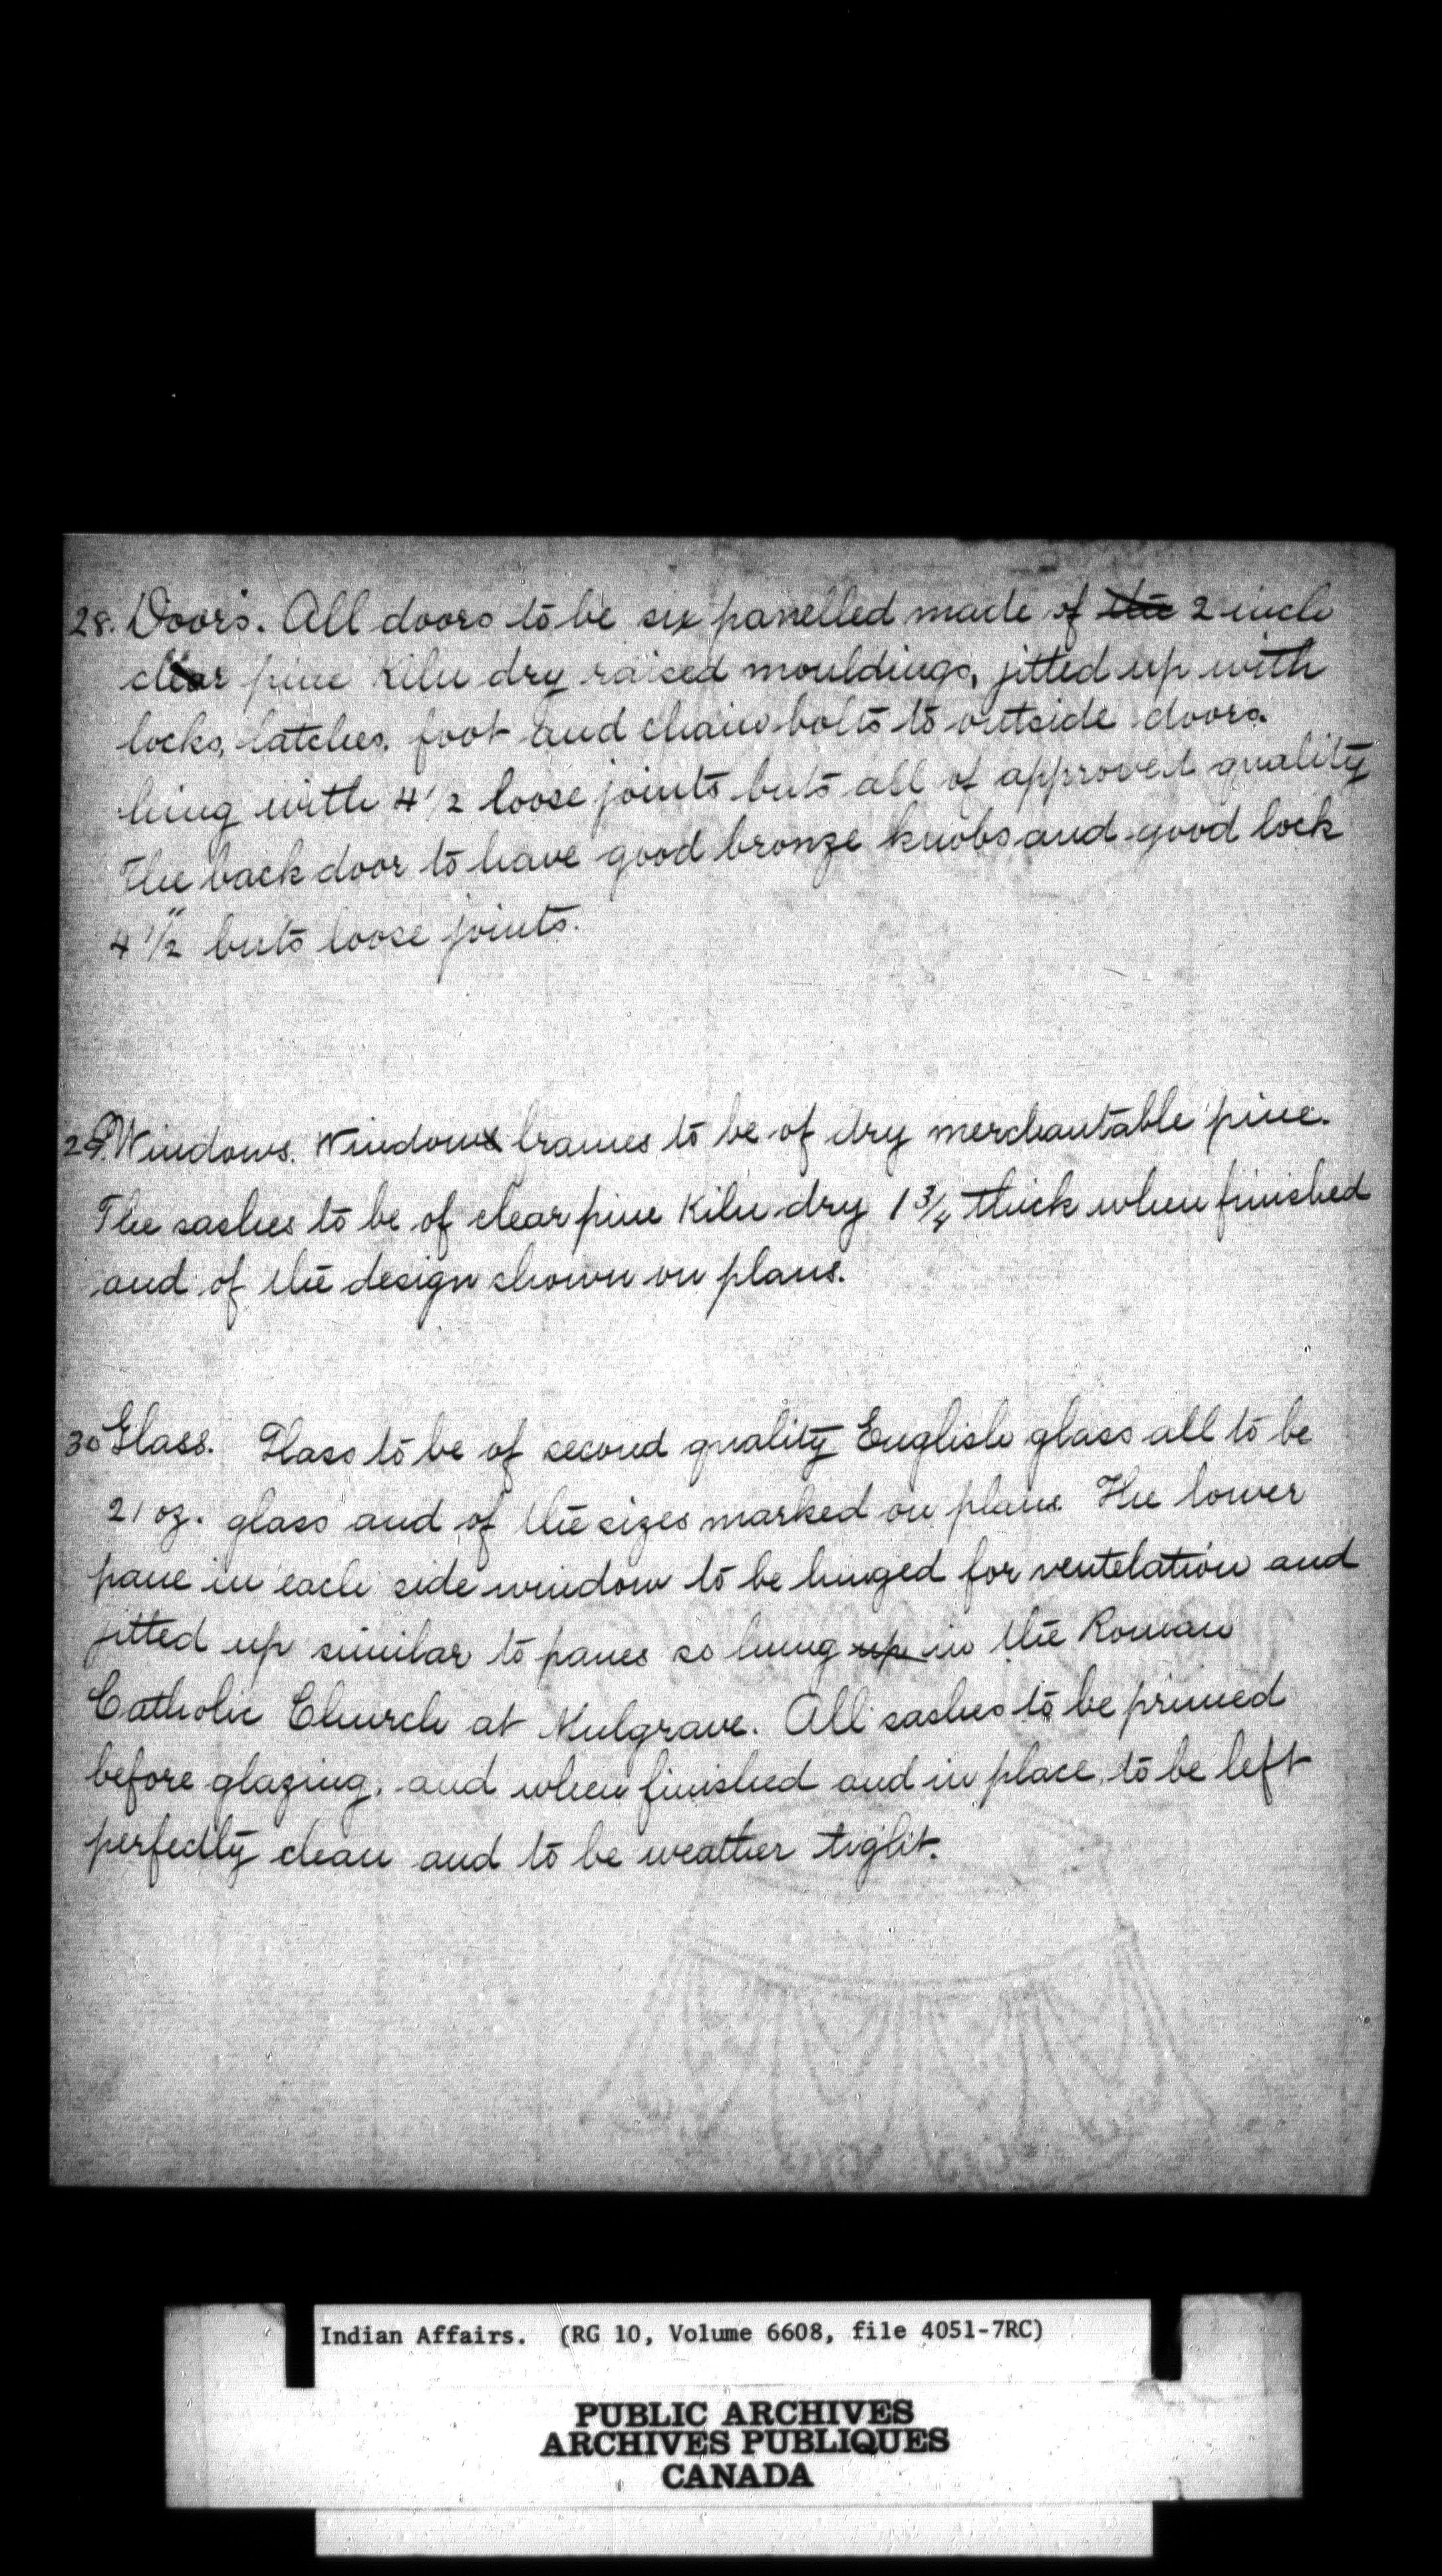 28. Doors. All doors to be six panelled made of the 2 inch
clear pine kiln dry raised mouldings, fitted up with
locks, latches, foot and chain bolts to outside doors.
hung with 4 1/2 loose joints buts all of approved quality
The back door to have good bronze knobs and good lock
4 1/2" buts loose joints.
29. Windows. Window frames to be of dry merchantable pine.
The sashes to be of clear pine kiln dry 1 3/4 thick when finished
and of the design shown on plans.
30 Glass. Glass to be of second quality English glass all to be
21 oz. glass and of the sizes marked on plans. The lower
pane in each side window to be hinged for ventelation and
fitted up similar to panes so hung up in the Roman
Catholic Church at Mulgrave. All sashes to be primed
before glazing, and when finished and in place, to be left
perfectly clean and to be weather tight.
Indian Affairs. (RG 10, Volume 6608, file 4051-7RC)
PUBLIC ARCHIVES
ARCHIVES PUBLIQUES
CANADA